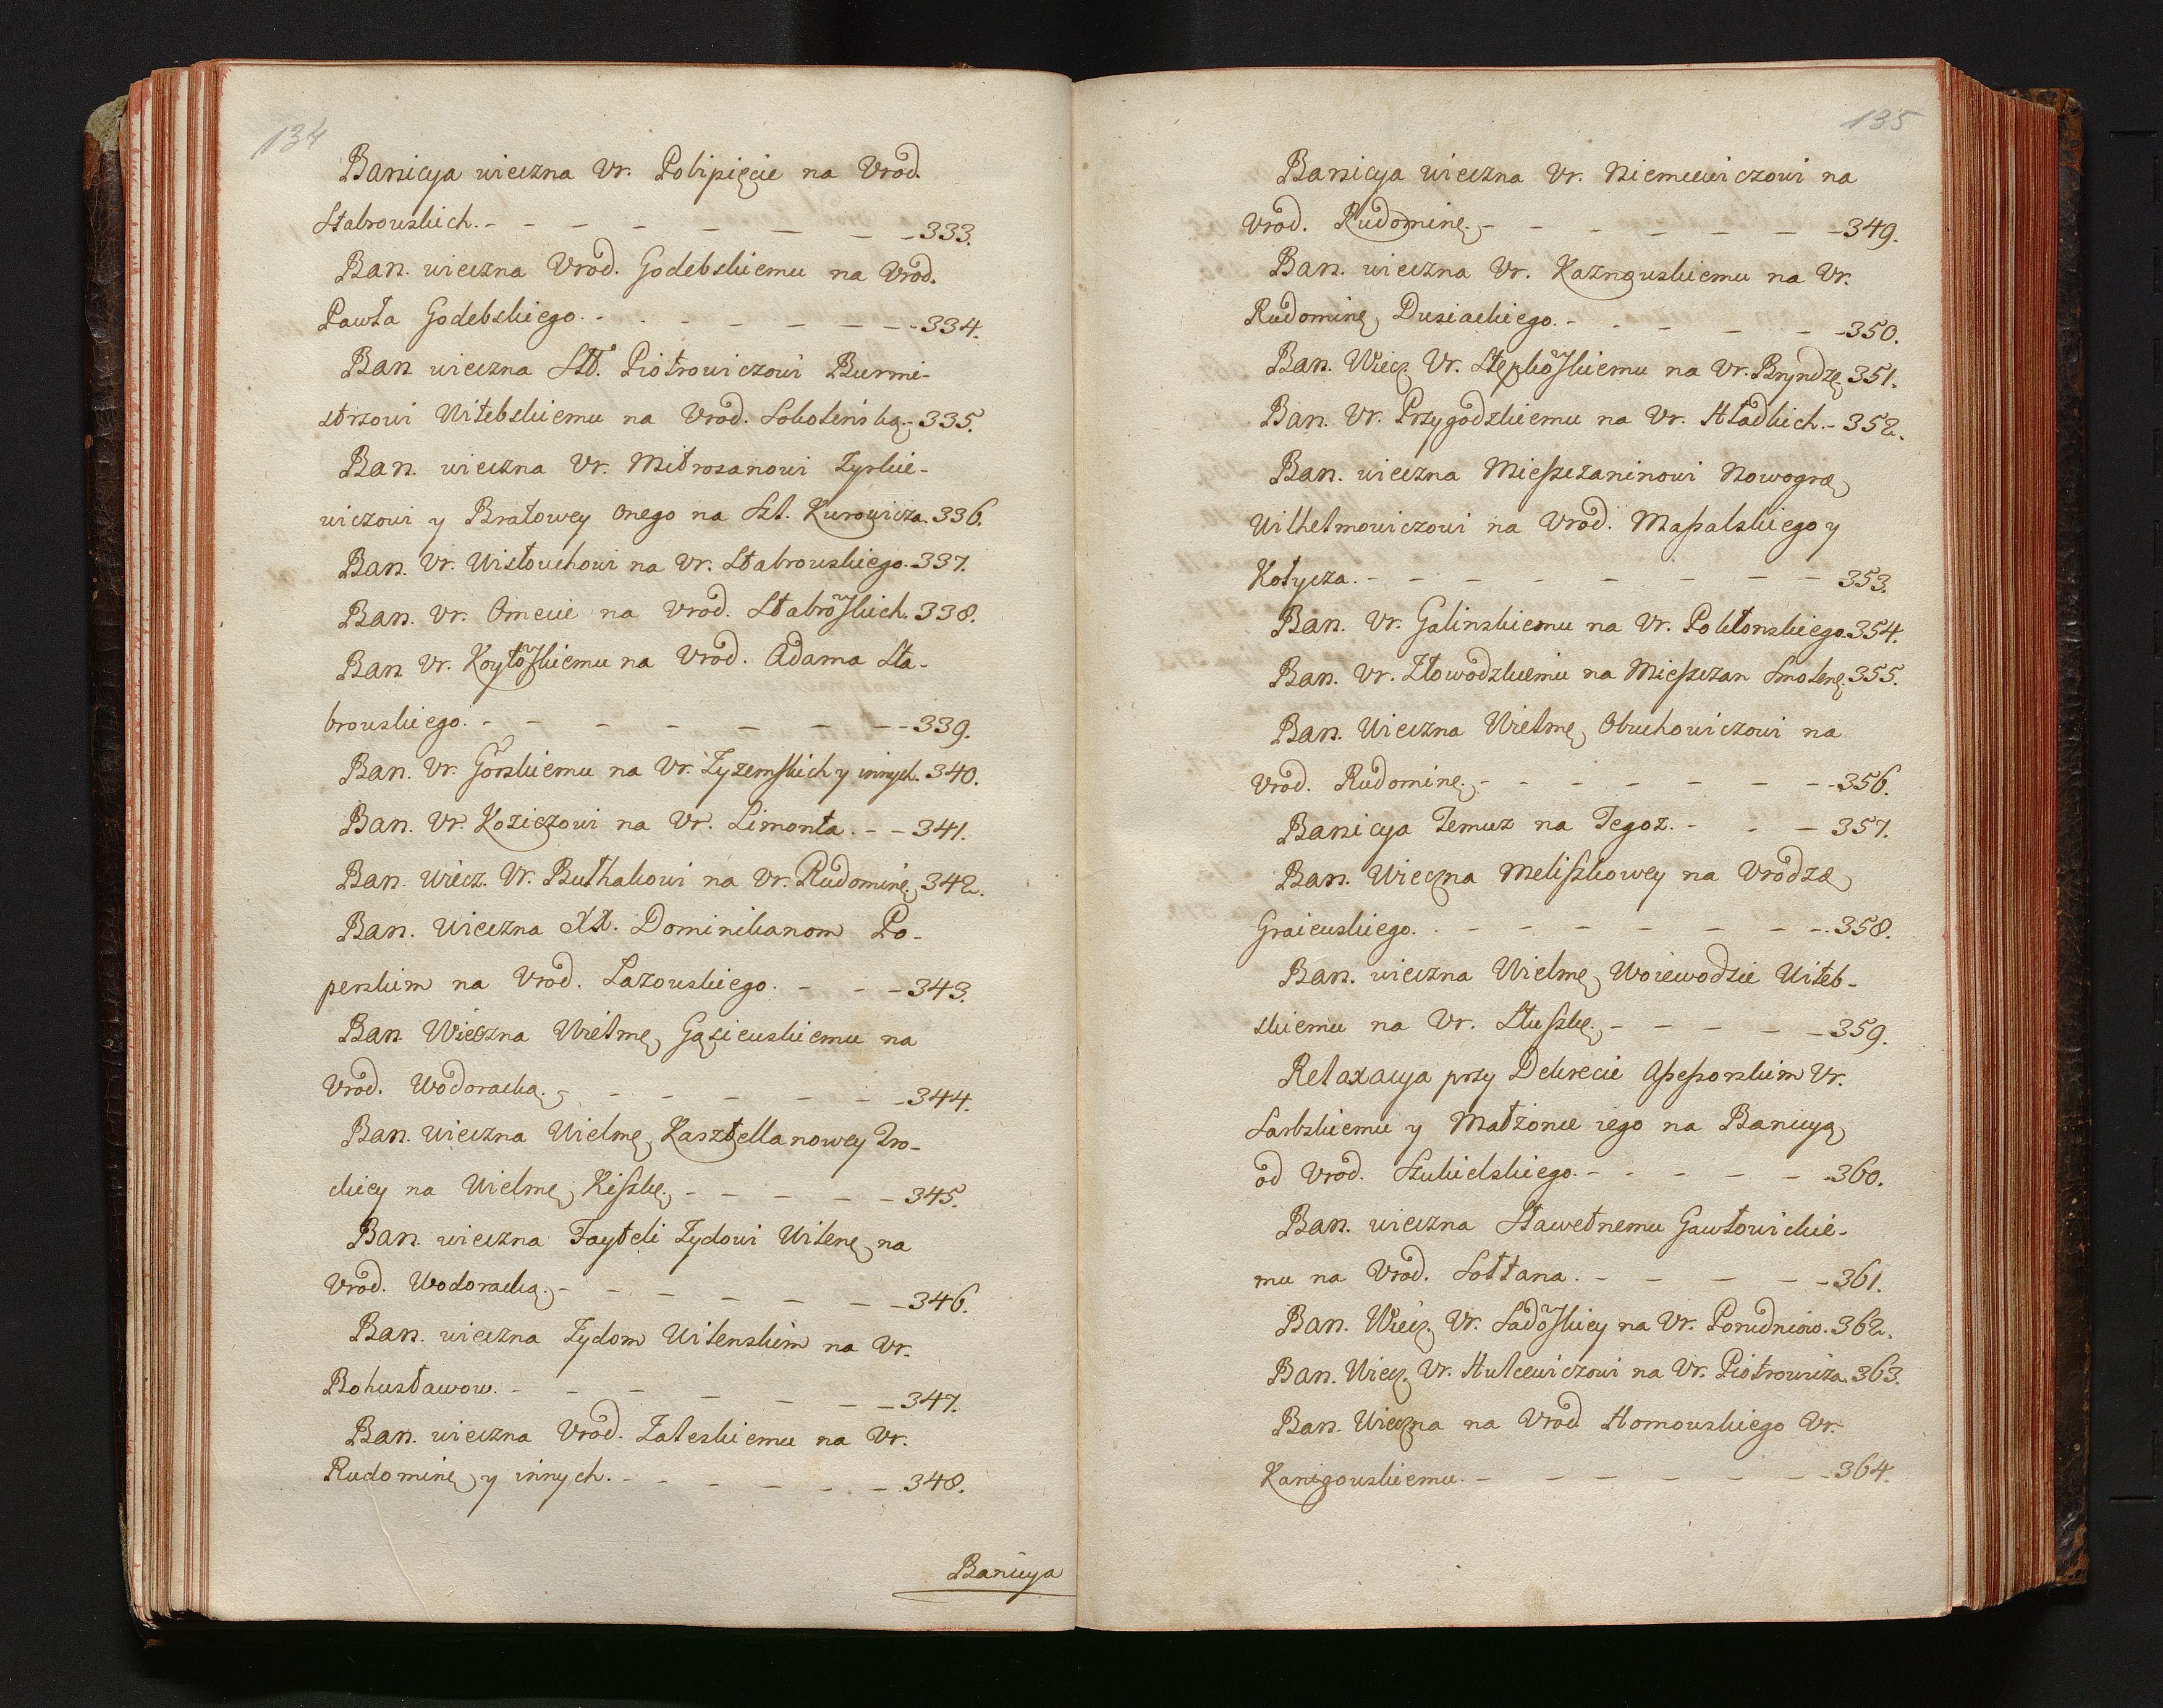 134
Banicya wieczna Vr. Polipięcie na Vrod.
Stabrowskich. - - - - - - - - 333.
Ban. wieczna Vrod. Godebskiemu na Vrod.
Pawła Godebskiego. - - - - - - - 334.
Ban wieczna Stt. Piotrowiczowi Burmi-
strzowi Witebskiemu na Vrod. Sokolińską. 335.
Ban. wieczna Vr. Mitrosanowi Zyrkie-
wiczowi y Bratowey onego na Szl. Kurowicza. 336.
Ban. Vr. Wisłouchowi na Vr. Stabrowskiego. 337.
Ban. Vr. Omecie na Vrod. Stabrowskich. 338.
Ban Vr. Koytowskiemu na Vrod. Adama Sta-
browskiego. - - - - - - - - 339.
Ban. Vr. Gorskiemu na Vr. Zyzemskich y innych. 340.
Ban. Vr. Koziczowi na Vr. Limonta. - - 341.
Ban. wiecz. Vr. Buthakowi na Vr. Rudominę. 342.
Ban. wieczna XX. Dominikanom Po-
perskim na Vrod. Łazowskiego. - - - 343.
Ban Wieczna Wielmę Gąsiewskiemu na
Vrod. Wodoracką. - - - - - - 344.
Ban. wieczna Wielmę Kasztellanowey Tro-
ckiey na Wielmę Kiszkę. - - - - - 345.
Ban. wieczna Fayteli Zydowi Wilenę na
Vrod. Wodoracką. - - - - - - - 346.
Ban. wieczna Zydom Wilenskim na Vr.
Bohusławow. - - - - - - - 347.
Ban. wieczna Vrod. Zaleskiemu na Vr.
Rudominę y innych. - - - - - - 348.
Banicya
135
Banicya wieczna Vr. Niemcewiczowi na
Vrod. Rudominę. - - - - - - - 349.
Ban. wieczna Vr. Kaznowskiemu na Vr.
Rudominę Dusiackiego. - - - - - - 350.
Ban. Wiecz Vr. Stepkowskiemu na Vr. Bryndzę 351.
Ban. Vr. Przygodzkiemu na Vr. Hładkich. - 352.
Ban. wieczna Mieszczaninowi Nowogrą
Wilhelmowiczowi na Vrod. Massalskiego y
Kotycza. - - - - - - - - 353.
Ban. Vr. Galinskiemu na Vr. Pokłonskiego. 354.
Ban. Vr. Złowodzkiemu na Mieszczan Smolenę. 355.
Ban. Wieczna Wielmę Obuchowiczowi na
Vrod. Rudominę. - - - - - - - 356.
Banicya Temuz na Tegoz. - - - 357.
Ban. Wieczna Meliszkowey na Vrodzą
Graiewskiego. - - - - - - - - 358.
Ban. wieczna Wielmę Woiewodzie Witeb-
skiemu na Vr. Słuszkę. - - - - - 359.
Relaxacya przy Dekrecie Assessorskim Vr.
Sarbskiemu y Małzonce iego na Banicyą
od Vrod. Szukielskiego. - - - - - 360.
Ban. wieczna Sławetnemu Gawłowickie-
mu na Vrod. Sołtana. - - - - - 361.
Ban. Wiecz. Vr. Sadowskiey na Vr. Porudniow. 362.
Ban. Wiecz. Vr. Hulcewiczowi na Vr. Piotrowicza. 363.
Ban. Wieczna na Vrod Homowskiego Vr.
Kanigowskiemu. - - - - - - - 364.